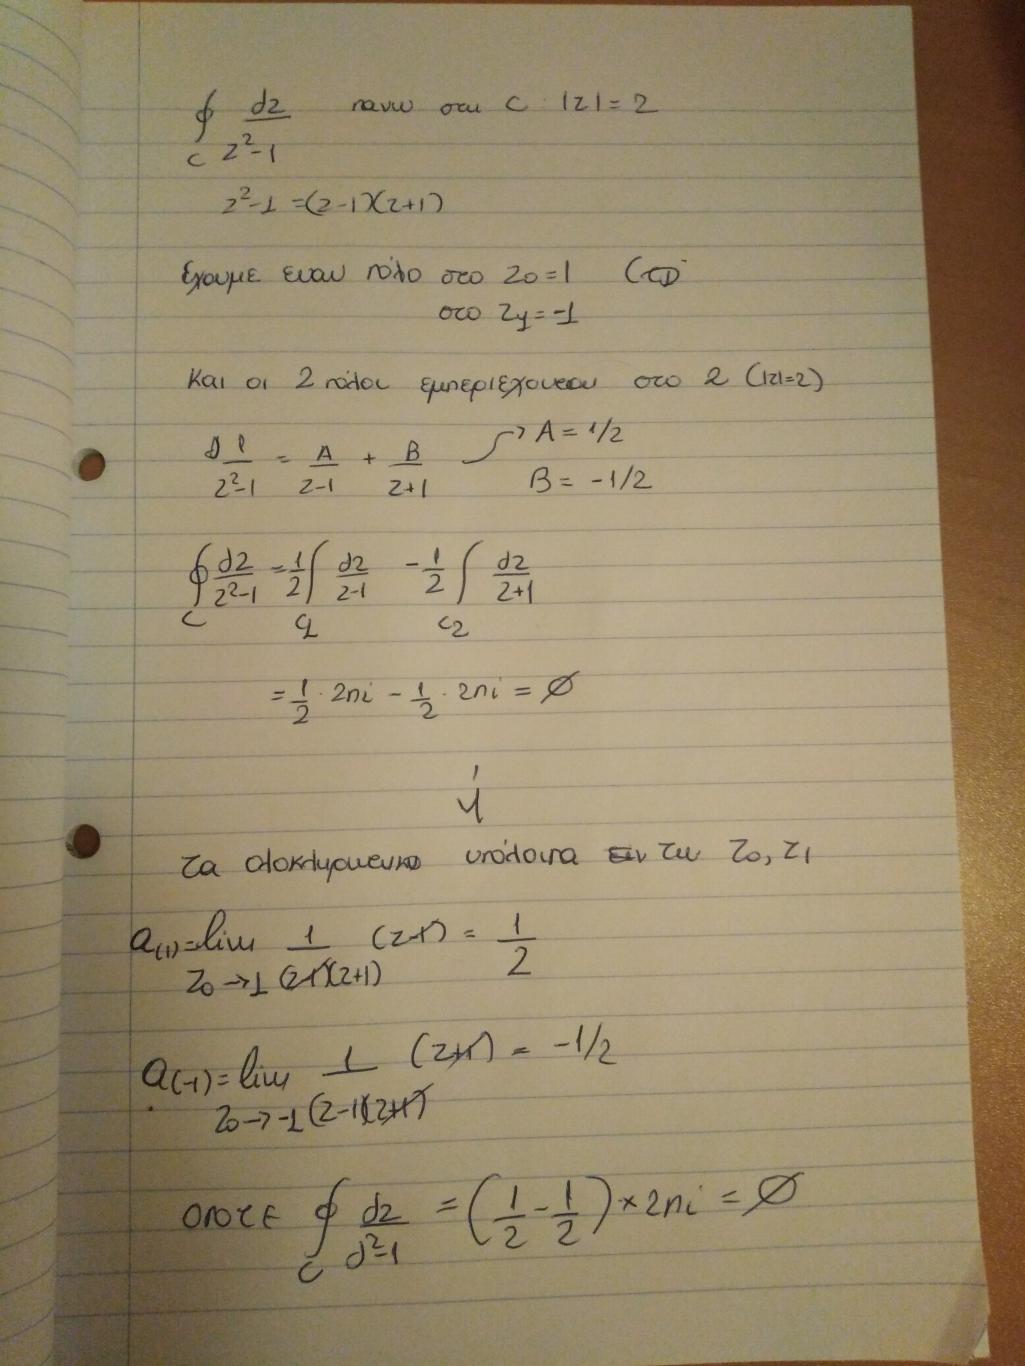 ∮_C dz/(z²-1) πανω στη C |z|=2
z²-1=(z-1)(z+1)
Εχουμε εναν πόλο στο z0=1
στο z1=-1
Και οι 2 πόλοι εμπεριέχονται στο 2 (|z|=2)
1/(z²-1) = A/(z-1) + B/(z+1) → A = 1/2
B = -1/2
∮_C dz/(z²-1) = 1/2 ∫_C1 dz/(z-1) - 1/2 ∫_C2 dz/(z+1)
= 1/2 · 2πi - 1/2 · 2πi = ∅
ή
τα ολοκληρωτικα υπόλοιπα των z0, z1
a(1)=lim z0→1 1/((z-1)(z+1)) (z-1) = 1/2
a(-1)=lim z0→-1 1/((z-1)(z+1)) (z+1) = -1/2
οποτε ∮_C dz/(d²-1) = (1/2 - 1/2) × 2πi = ∅